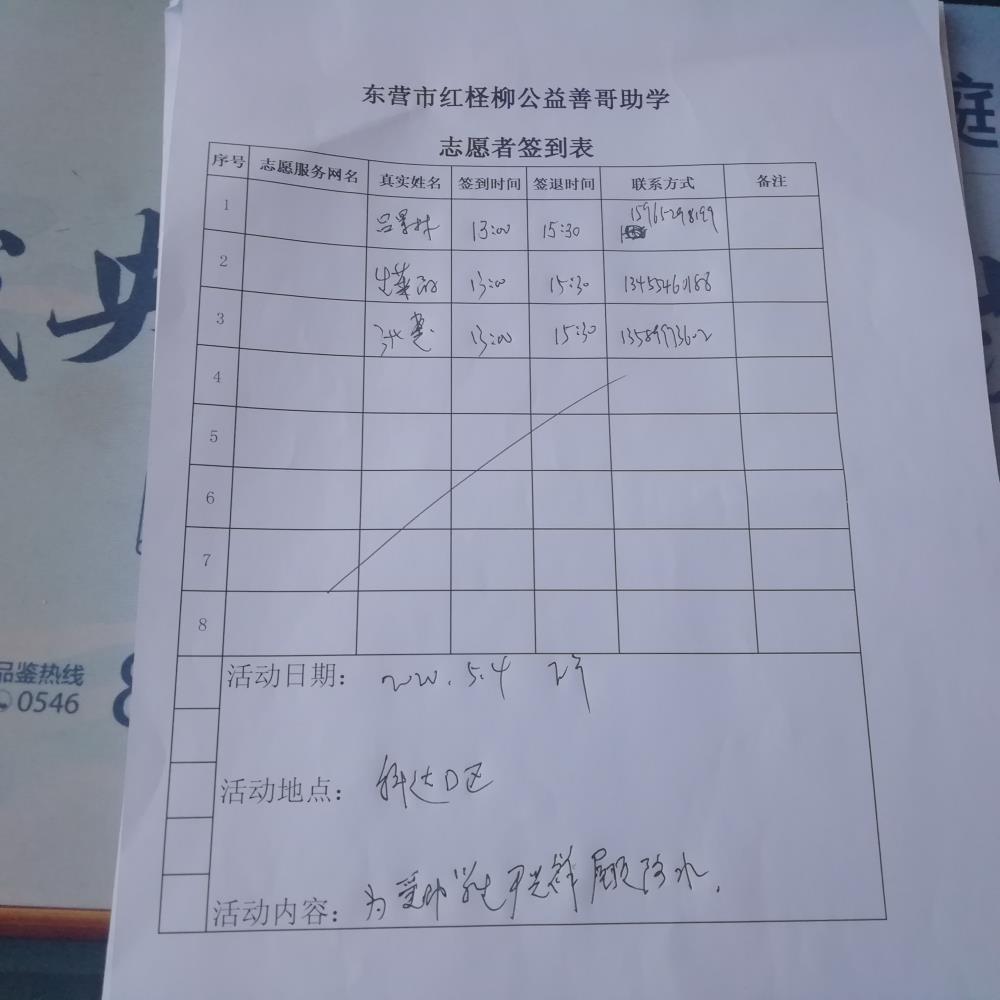 东营市红柽柳公益善哥助学
志愿者签到表
序号 志愿服务网名 真实姓名 签到时间 签退时间 联系方式 备注
1 13:00 15:30 15965298199
2 13:00 15:30 13455460188
3 13:00 15:30 13589973602
4
5
6
7
8
活动日期： 2020.5.4
活动地点： 科达D区
活动内容： 为受助学生 屋顶防水.
品鉴热线
0546
庭